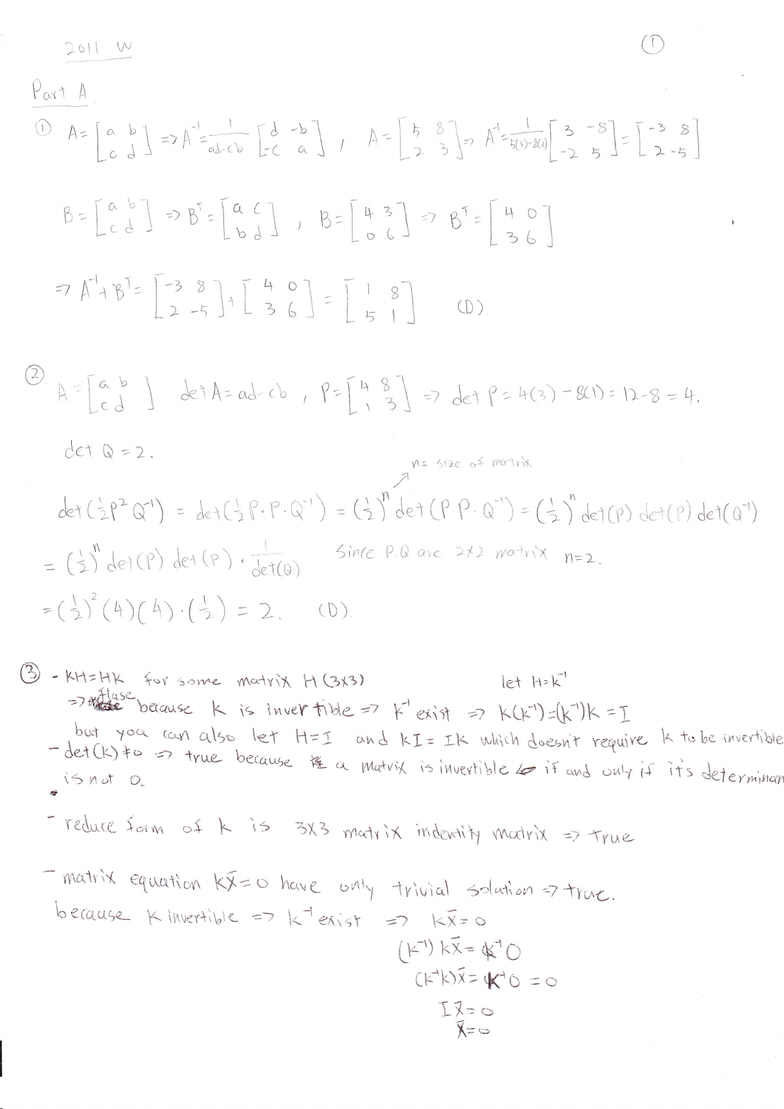 2011 W ①
Part A
① A = [a b; c d] => A⁻¹ = 1/(ad-cb) [d -b; -c a] , A = [5 8; 2 3] => A⁻¹ = 1/(5(3)-8(2)) [3 -8; -2 5] = [-3 8; 2 -5]
B = [a b; c d] => Bᵀ = [a c; b d] , B = [4 3; 0 6] => Bᵀ = [4 0; 3 6]
=> A⁻¹ + Bᵀ = [-3 8; 2 -5] + [4 0; 3 6] = [1 8; 5 1] (D)
② A = [a b; c d] det A = ad-cb , P = [4 8; 1 3] => det P = 4(3) - 8(1) = 12-8 = 4.
det Q = 2.
n = size of matrix
det(½P²Q⁻¹) = det(½P·P·Q⁻¹) = (½)ⁿ det(P P·Q⁻¹) = (½)ⁿ det(P) det(P) det(Q⁻¹)
= (½)ⁿ det(P) det(P) · 1/det(Q) Since P Q are 2x2 matrix n=2.
= (½)² (4)(4)·(½) = 2. (D)
③ - KH=HK for some matrix H (3x3) let H=K⁻¹
=> flase because K is invertible => K⁻¹ exist => K(K⁻¹)=(K⁻¹)K = I
but you can also let H=I and KI=IK which doesn't require K to be invertible
- det(K)≠0 => true because a matrix is invertible if and only if it's determinan
is not 0.
- reduce form of K is 3X3 matrix indentity matrix => true
- matrix equation Kx̄=0 have only trivial solution => true.
because K invertible => K⁻¹ exist => Kx̄=0
(K⁻¹) Kx̄ = K⁻¹0
(K⁻¹K)x̄ = K⁻¹0 = 0
Ix̄=0
x̄=0